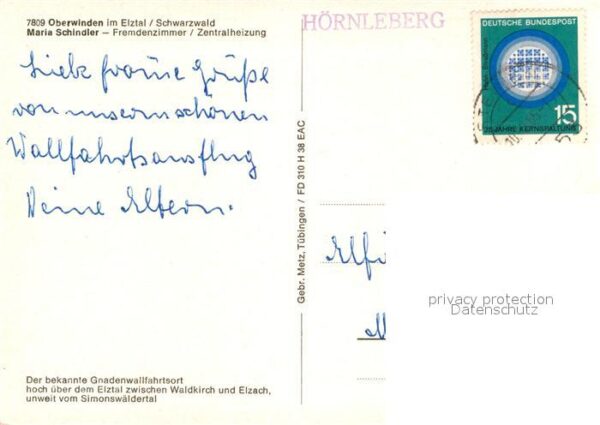 7809 Oberwinden im Elztal / Schwarzwald
Maria Schindler – Fremdenzimmer / Zentralheizung
HÖRNLEBERG
DEUTSCHE BUNDESPOST
15
25 JAHRE KERNSPALTUNG
Liebe Grüße
von unserm schönen
Wallfahrtsausflug
Deine Eltern.
Gebr. Metz, Tübingen / FD 310 H 38 EAC
privacy protection
Datenschutz
Der bekannte Gnadenwallfahrtsort
hoch über dem Elztal zwischen Waldkirch und Elzach,
unweit vom Simonswäldertal